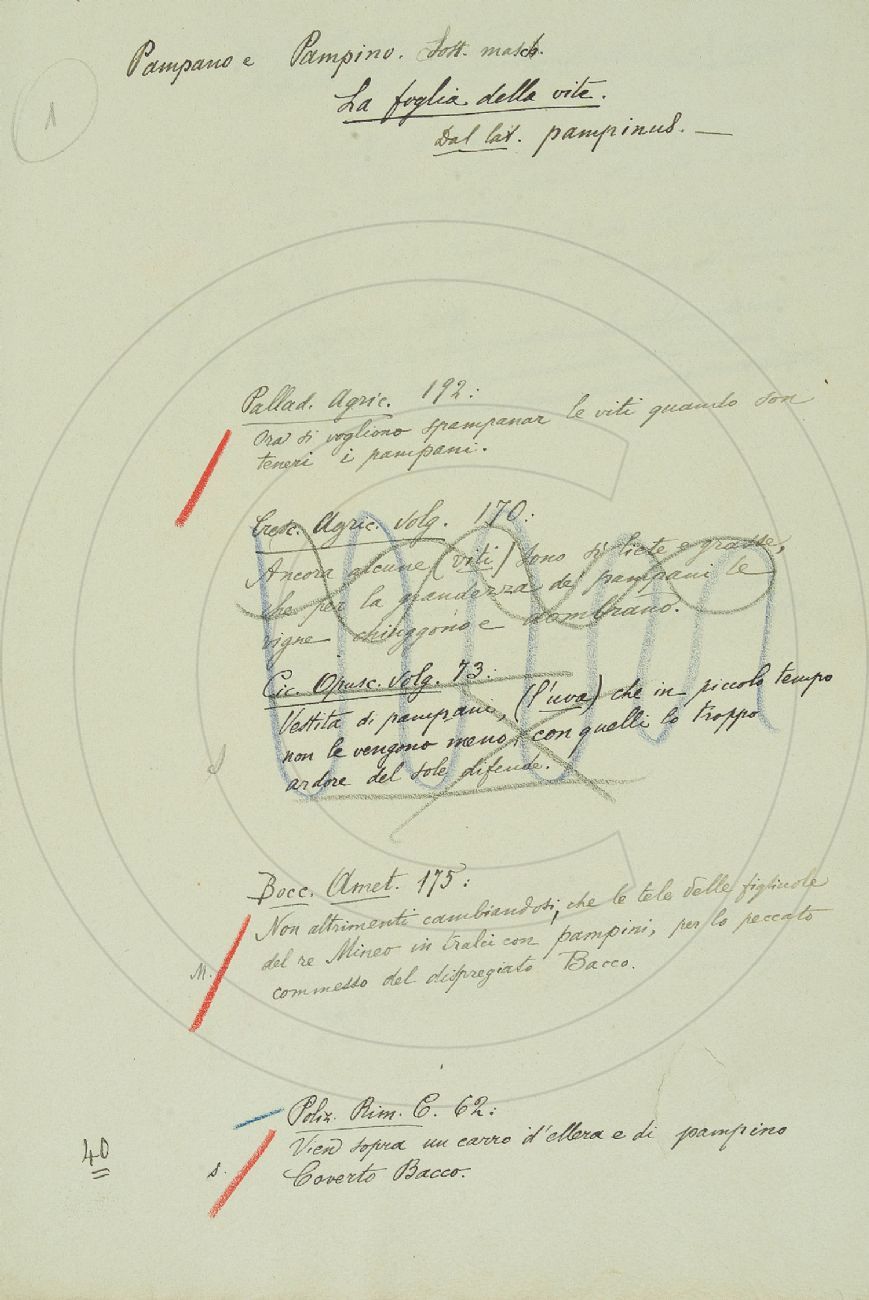 Pampano e Pampino. Sost. masch.
1
La foglia della vite.
Dal lat. pampinus. —
Pallad. Agric. 192:
Ora si vogliono spampanar le viti quando son
teneri i pampani.
Cresc. Agric. Volg. 170:
Ancora alcune (viti) sono sì liete e grasse,
che per la grandezza de' pampani le
vigne chiuggono e adombrano.
Cic. Opusc. Volg. 73:
Vestita di pampani, (l'uva) che in piccolo tempo
non le vengono meno, con quelli lo troppo
ardore del sole difende.
Bocc. Amet. 175:
Non altrimenti cambiandosi, che le tele delle figliuole
del re Mineo in tralci con pampini, per lo peccato
M.
commesso del dispregiato Bacco.
Poliz. Rim. C. 62:
Vien sopra un carro d'ellera e di pampino
40
s.
Coverto Bacco.